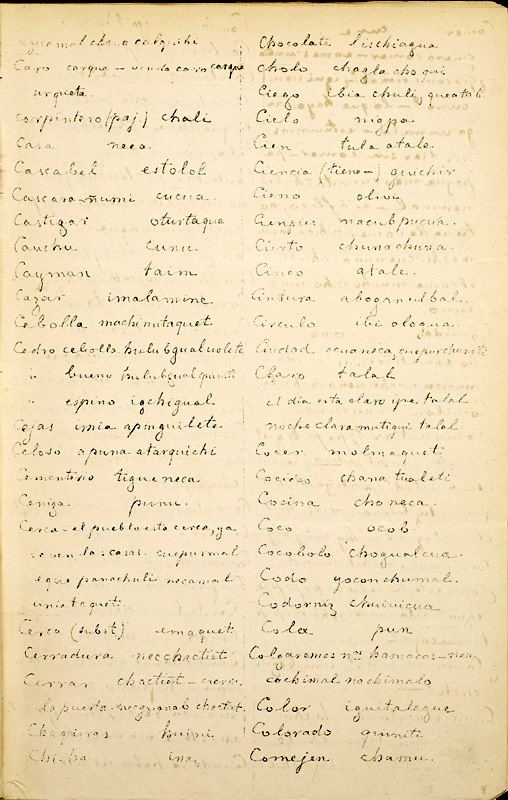 Caro carque - vendo caro carque
urqueta.
Carpintero (paj) chali
Casa neca
Cascabel estolol
Cascara - ñumi cucua.
Castigar oturtaque
Cauchu cunu.
Cayman taim
Cazar imalamine
Cebolla machinutaquet
Cedro cebolla hulubgualuolete
" bueno hulubgualquiniti
" espino igchigual
Cejas imia apinguilete
Celoso apuna atarquichi
Cementerio tigueneca.
Ceniza punu.
Cerca - el pueblo esta cerca, ya
se ven las casas. cuepurmal
eque panachuli necamal
unistaquet.
Cerca (subst) emaquet.
Cerradura necchactiet
Cerrar chactiet - cierra
la puerta - necguanab chactiet.
Chaquiras huini
Chicha ina
Chocolate luchiagua
Cholo chagla choqui
Ciego ibia chuli,
Cielo nigpa
Cien tula atale.
Ciencia (tiene -) guichir
Cieno olivi
Cienpies nacubpucua.
Cierto chunachuna.
Cinco atale.
Cintura aboganulbal.
Circulo ibi ologua.
Ciudad
Claro talal
el dia esta claro ipe talal
noche clara mutiqui talal
Cocer molmaquet
Cocido chana tualeti
Cocina choneca.
Coco ocob
Cocobolo chogualcua.
Codo yoconchumal.
Codorniz chuiuicua
Cola pun
Colgaremos ntras hamacas - nea
cachimal nachimalo
Color iguetalegue
Colorado quiniti
Comejen chamu.
4